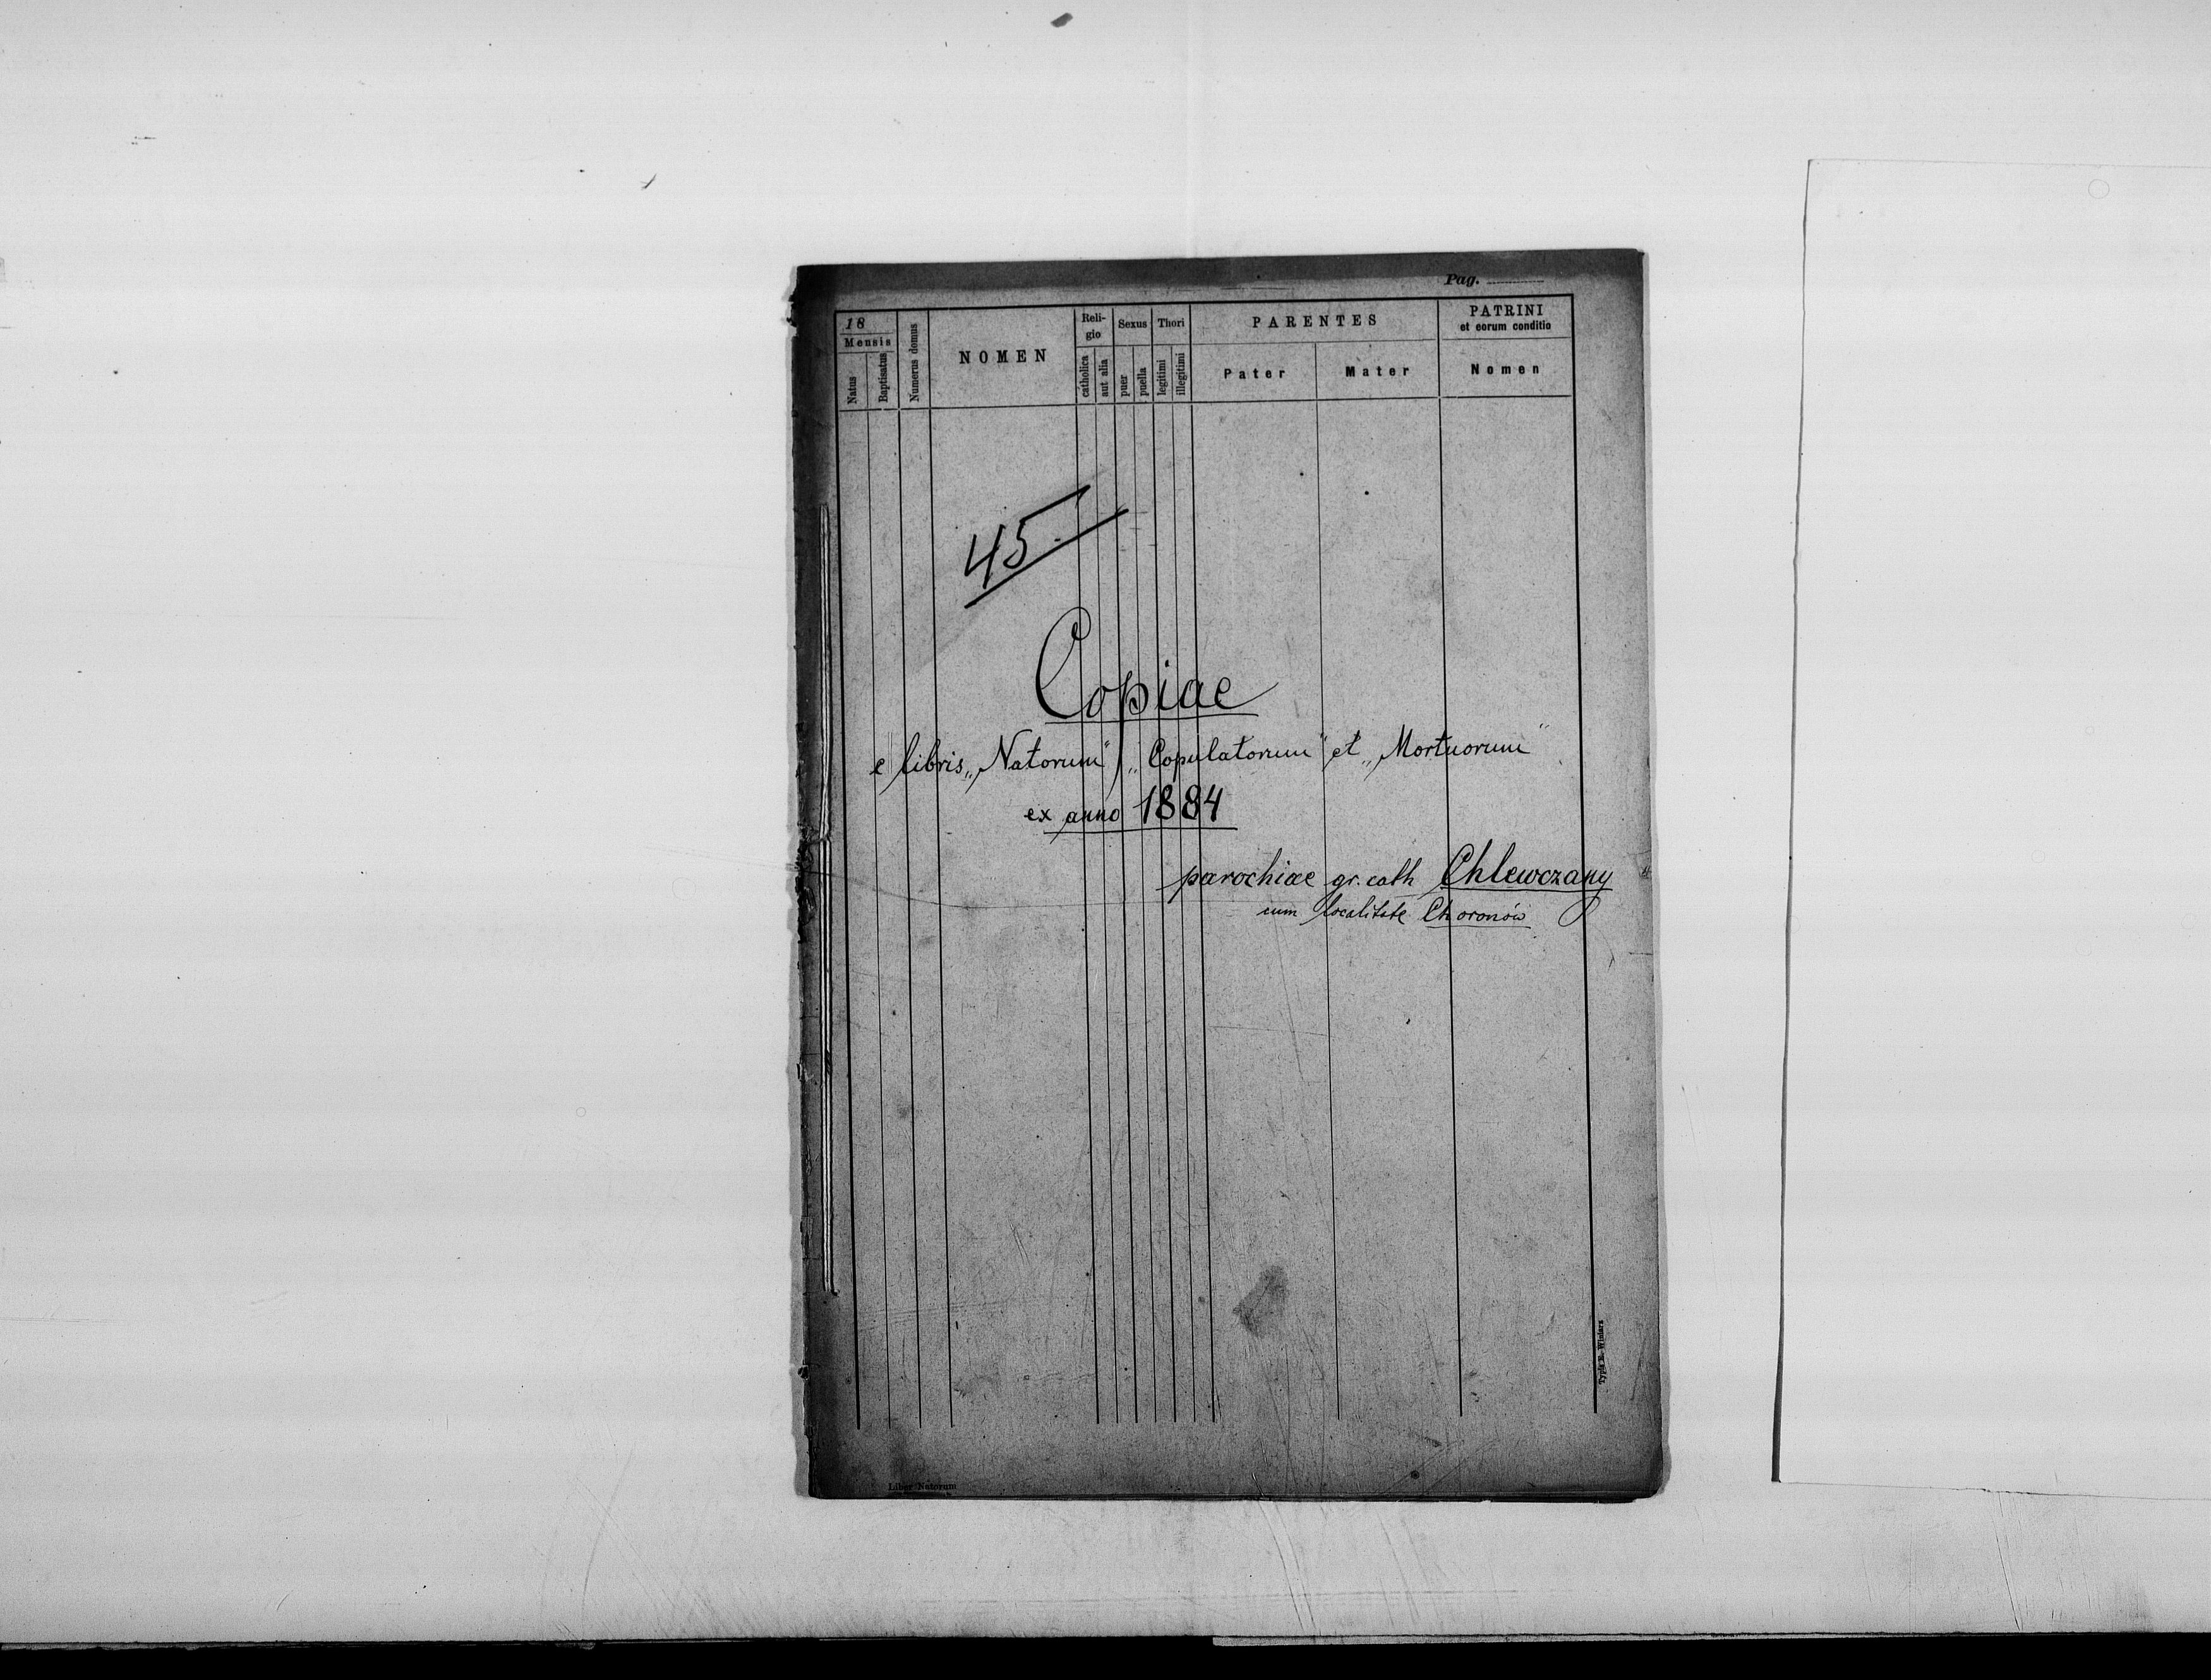 Pag.
18
Mensis
Natus
Baptisatus
Numerus domus
NOMEN
Reli-
gio
catholica
aut alia
Sexus
puer
puella
Thori
legitimi
illegitimi
PARENTES
Pater
Mater
PATRINI
et eorum conditio
Nomen
45.
Copiae
e libris „Natorum" „Copulatorum" et „Mortuorum"
ex anno 1884
parochiae gr. cath Chlewczany
cum localitate Choronów
Typis E. Winiarz
Liber Natorum